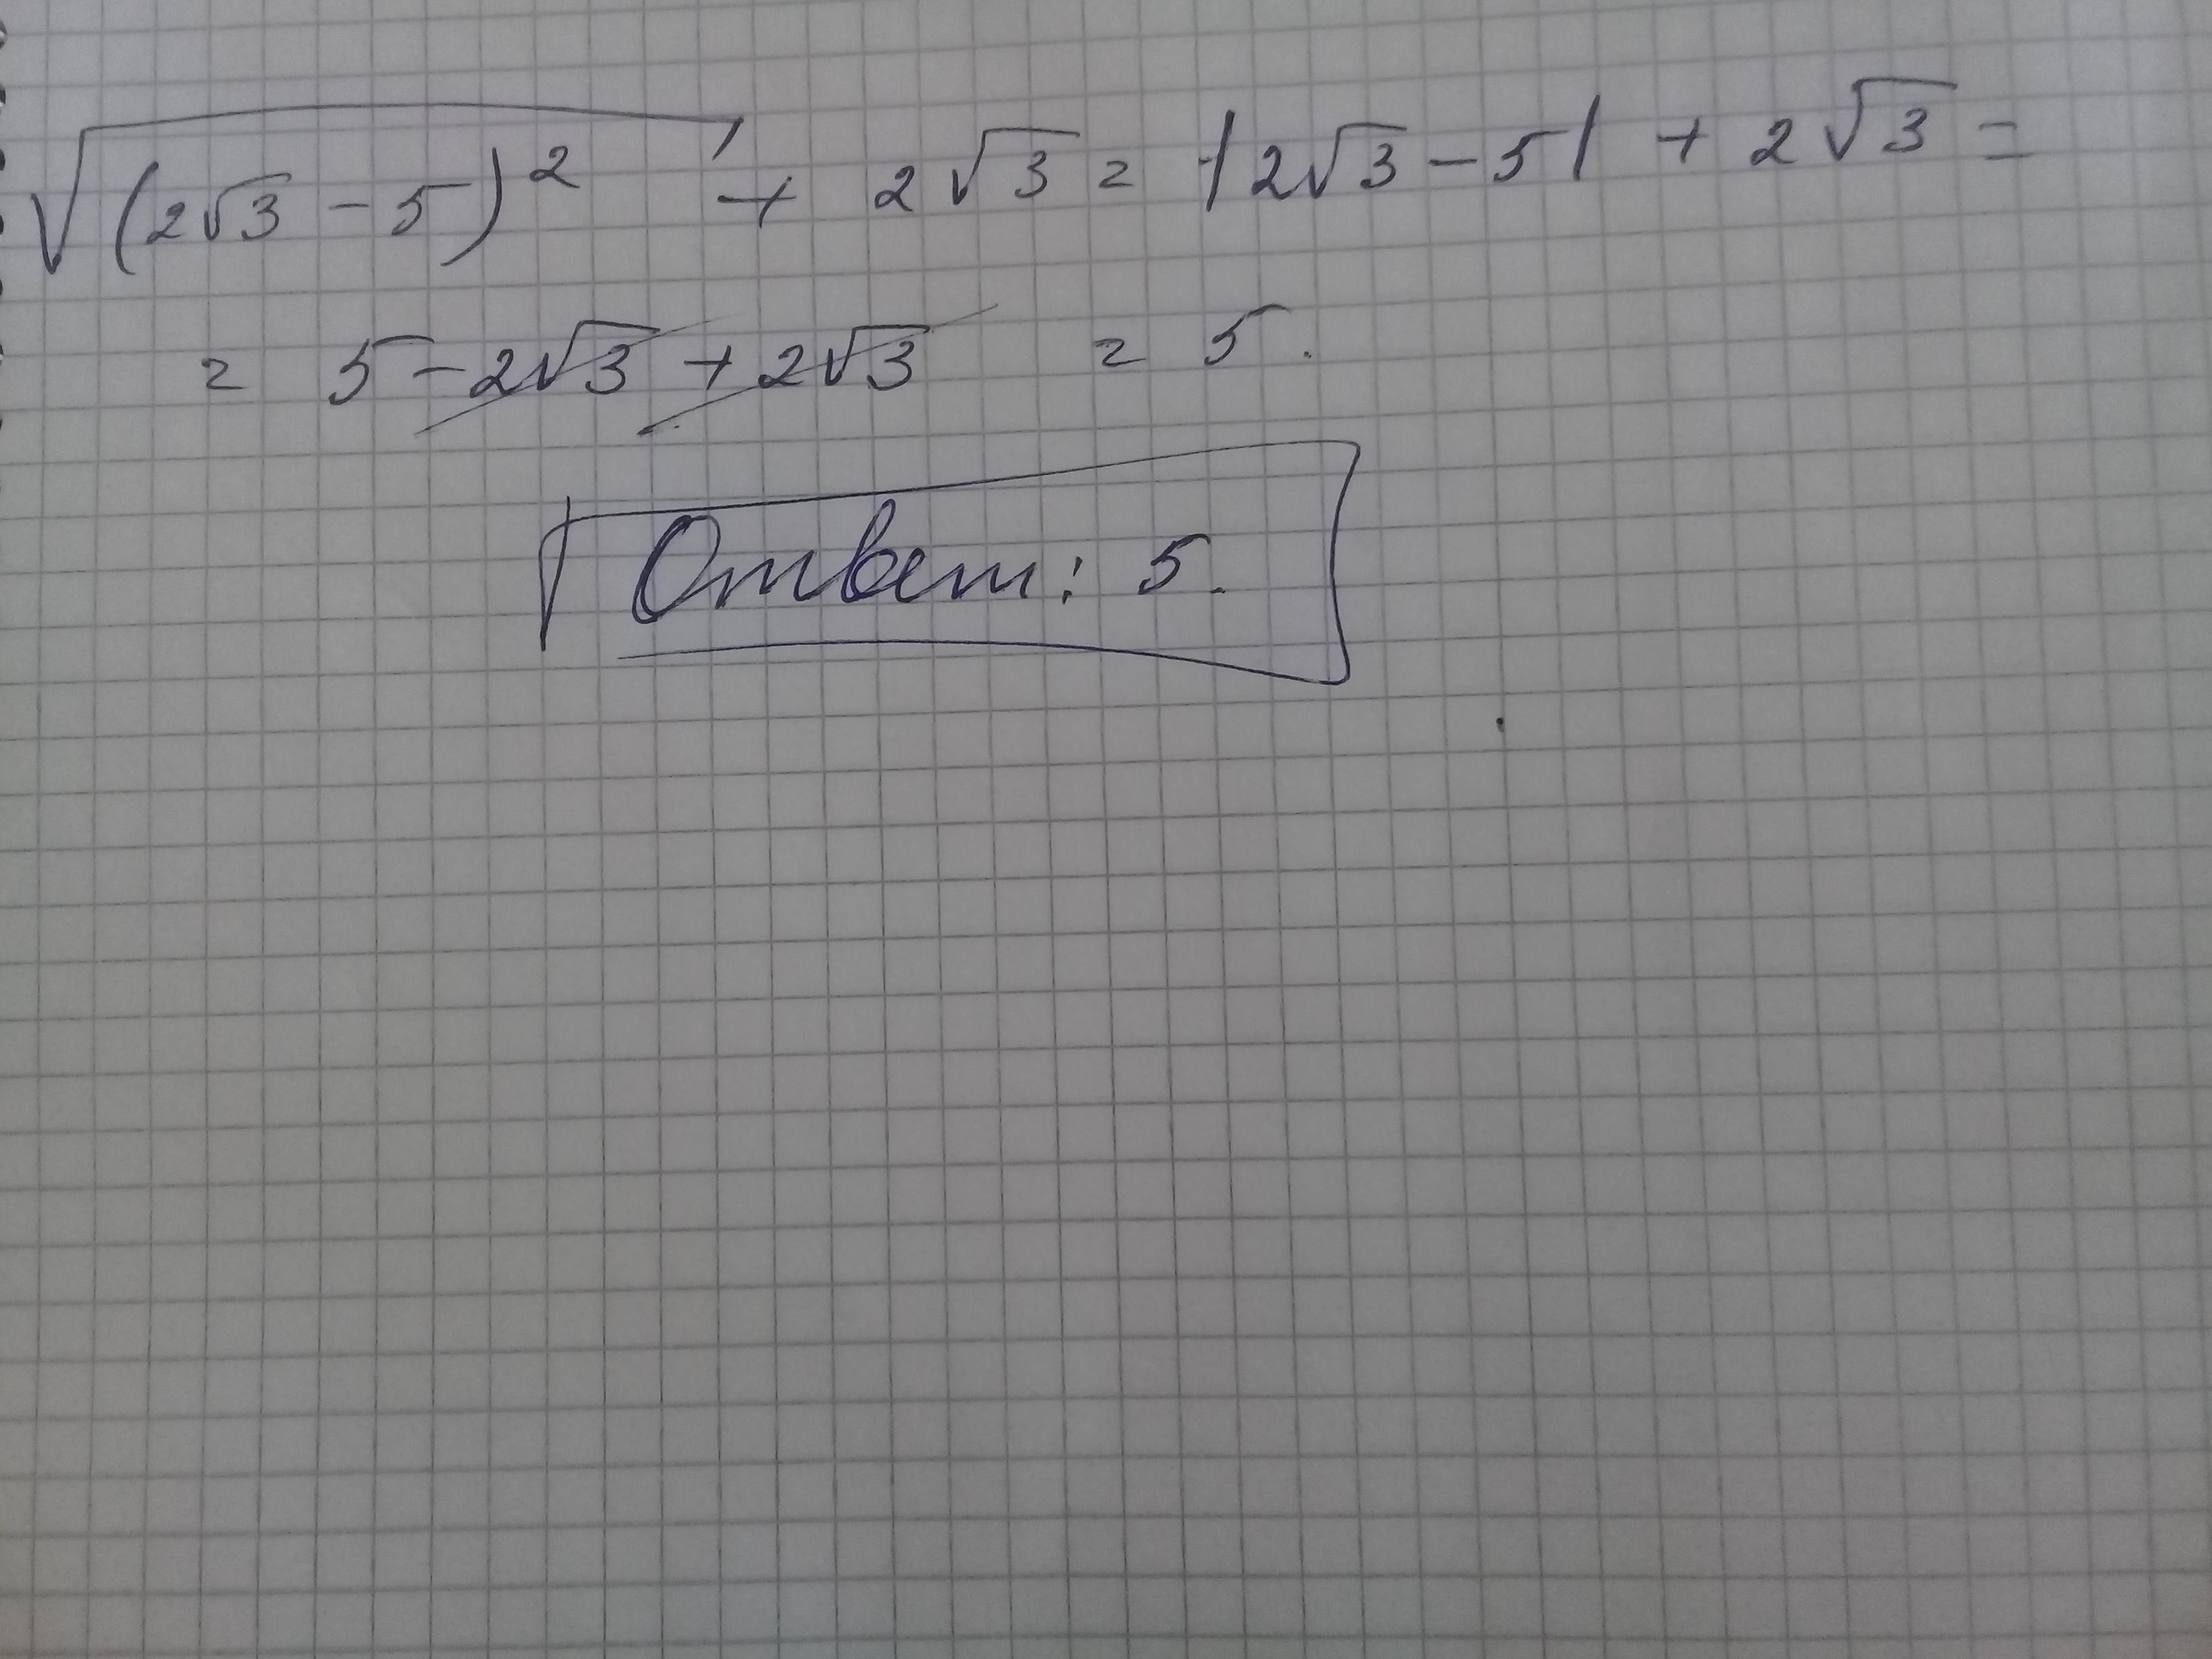 √(2√3 - 5)² + 2√3 = |2√3 - 5| + 2√3 =
= 5 - 2√3 + 2√3 = 5.
Ответ: 5.